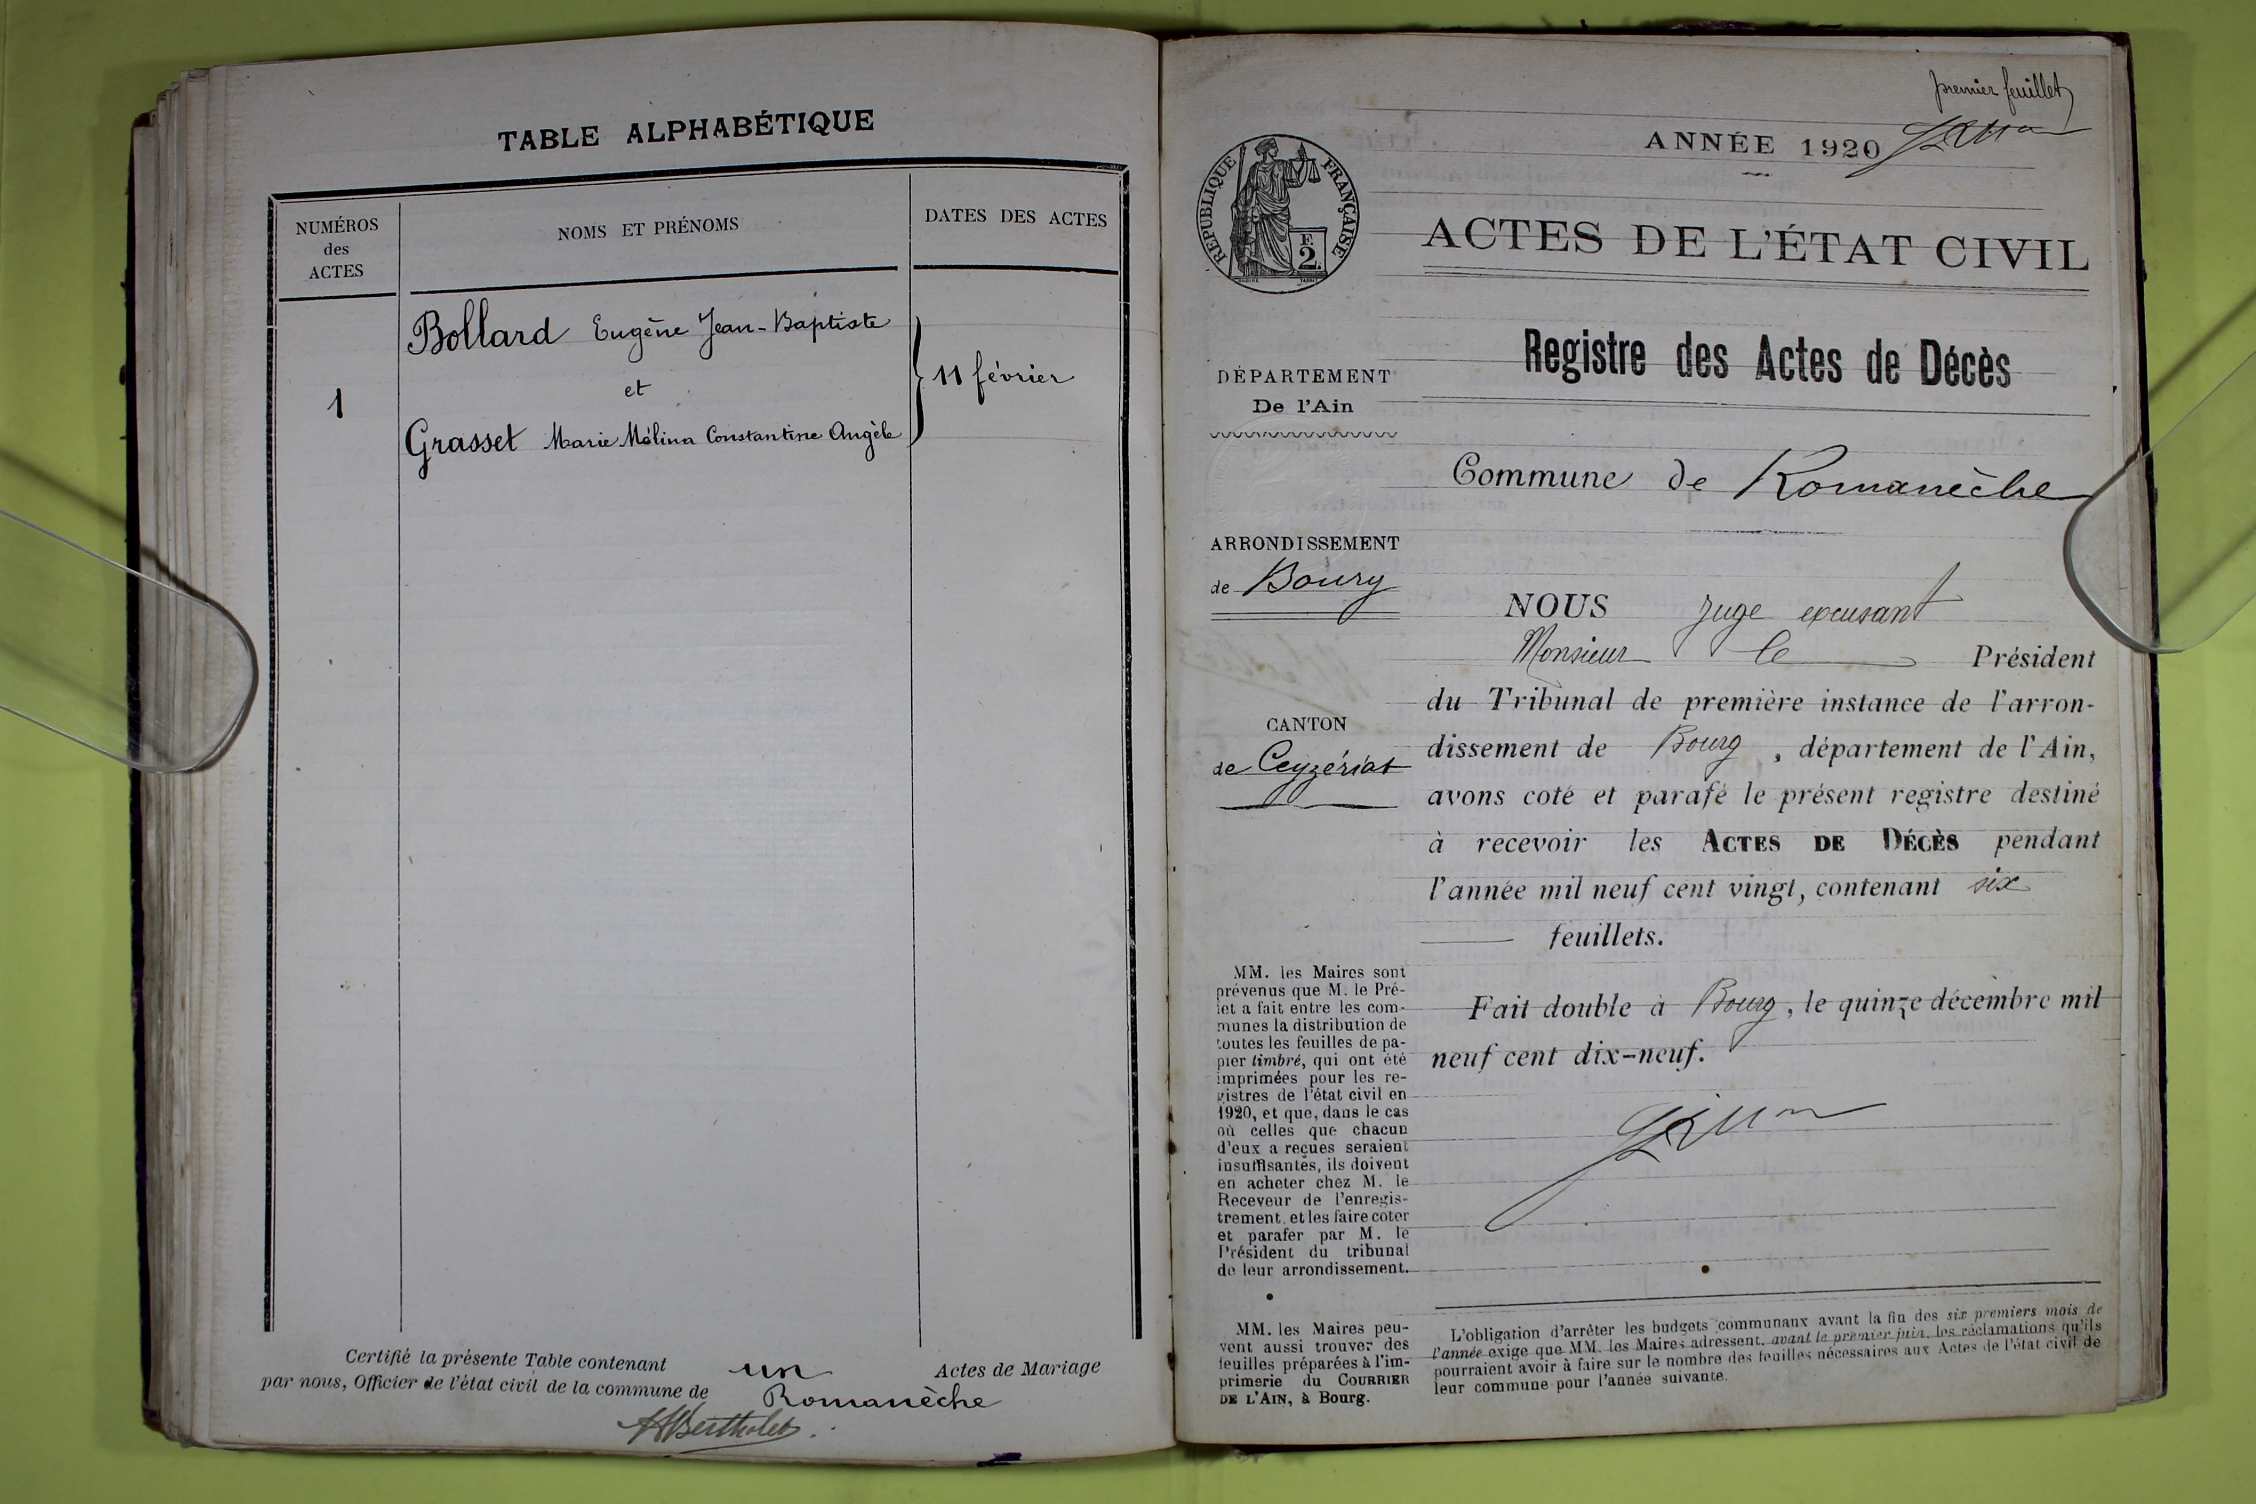 TABLE ALPHABÉTIQUE
NUMÉROS
des
ACTES
NOMS ET PRÉNOMS
DATES DES ACTES
Bollard Eugène Jean-Baptiste
et
1
11 février
Grasset Marie Mélina Constantine Angèle
Certifié la présente Table contenant un Actes de Mariage
par nous, Officier de l'état civil de la commune de Romanèche
Bertholet
premier feuillet
ANNÉE 1920
RÉPUBLIQUE FRANÇAISE
F.
2
ACTES DE L'ÉTAT CIVIL
Registre des Actes de Décès
DÉPARTEMENT
De l'Ain
Commune de Romanèche
ARRONDISSEMENT
de Bourg
CANTON
de Ceyzériat
NOUS juge excusant
Monsieur le Président
du Tribunal de première instance de l'arron-
dissement de Bourg, département de l'Ain,
avons coté et parafé le présent registre destiné
à recevoir les ACTES DE DÉCÈS pendant
l'année mil neuf cent vingt, contenant six
feuillets.
Fait double à Bourg, le quinze décembre mil
neuf cent dix-neuf.
MM. les Maires sont
prévenus que M. le Pré-
fet a fait entre les com-
munes la distribution de
toutes les feuilles de pa-
pier timbré, qui ont été
imprimées pour les re-
gistres de l'état civil en
1920, et que, dans le cas
où celles que chacun
d'eux a reçues seraient
insuffisantes, ils doivent
en acheter chez M. le
Receveur de l'enregis-
trement, et les faire coter
et parafer par M. le
Président du tribunal
de leur arrondissement.
MM. les Maires peu-
vent aussi trouver des
feuilles préparées à l'im-
primerie du COURRIER
DE L'AIN, à Bourg.
L'obligation d'arrêter les budgets communaux avant la fin des six premiers mois de
l'année exige que MM. les Maires adressent, avant le premier juin, les réclamations qu'ils
pourraient avoir à faire sur le nombre des feuilles nécessaires aux Actes de l'état civil de
leur commune pour l'année suivante.